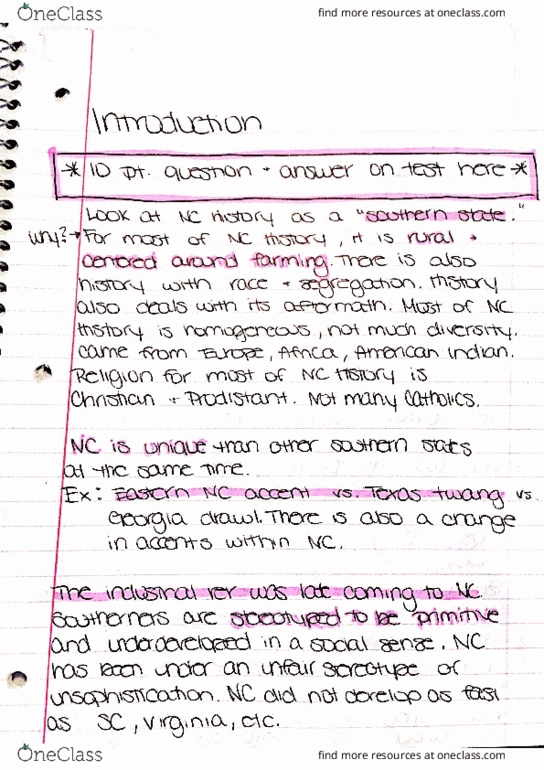 OneClass
find more resources at oneclass.com
Introduction
* 10 pt. question + answer on test here *
Look at NC history as a "southern state."
why? → For most of NC History, it is rural +
centered around farming. There is also
history with race + segregation. History
also deals with its aftermath. Most of NC
History is homogeneous, not much diversity.
came from Europe, Africa, American Indian.
Religion for most of NC History is
Christian + Prodistant. Not many Catholics.
NC is unique than other southern states
at the same time.
Ex: Eastern NC accent vs. Texas twang vs.
Georgia drawl. There is also a change
in accents within NC.
The industrial rev was late coming to NC
Southerners are steotyped to be primitive
and underdeveloped in a social sense. NC
has been under an unfair stereotype of
unsophistication. NC did not develop as fast
as SC, Virginia, etc.
OneClass
find more resources at oneclass.com